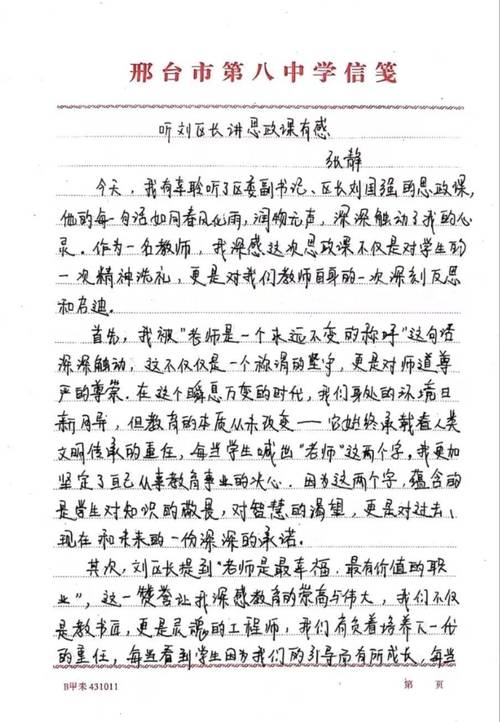 邢台市第八中学信笺
听刘区长讲思政课有感
张静
今天，我有幸聆听了区委副书记、区长刘国强的思政课，
他的每一句话如同春风化雨，润物无声，深深触动了我的心
灵。作为一名教师，我深感这次思政课不仅是对学生的
一次精神洗礼，更是对我们教师自身的一次深刻反思
和启迪．
首先，我被"老师是一个永远不变的称呼"这句话
深深触动，这不仅仅是一个称谓的坚守，更是对师道尊
严的尊崇。在这个瞬息万变的时代，我们身处的环境日
新月异，但教育的本质从未改变——它始终承载着人类
文明传承的重任，每当学生喊出"老师"这两个字，我更加
坚定了自己从事教育事业的决心．因为这两个字，蕴含的
是学生对知识的敬畏，对智慧的渴望，更是对过去、
现在和未来的一份深深的承诺．
其次，刘区长提到"老师是最幸福、最有价值的职
业"，这一赞誉让我深感教育的崇高与伟大，我们不仅
是教书匠，更是灵魂的工程师，我们肩负着培养下一代
的重任，每当看到学生因为我们的引导而有所成长，每当
B甲未431011
第 页